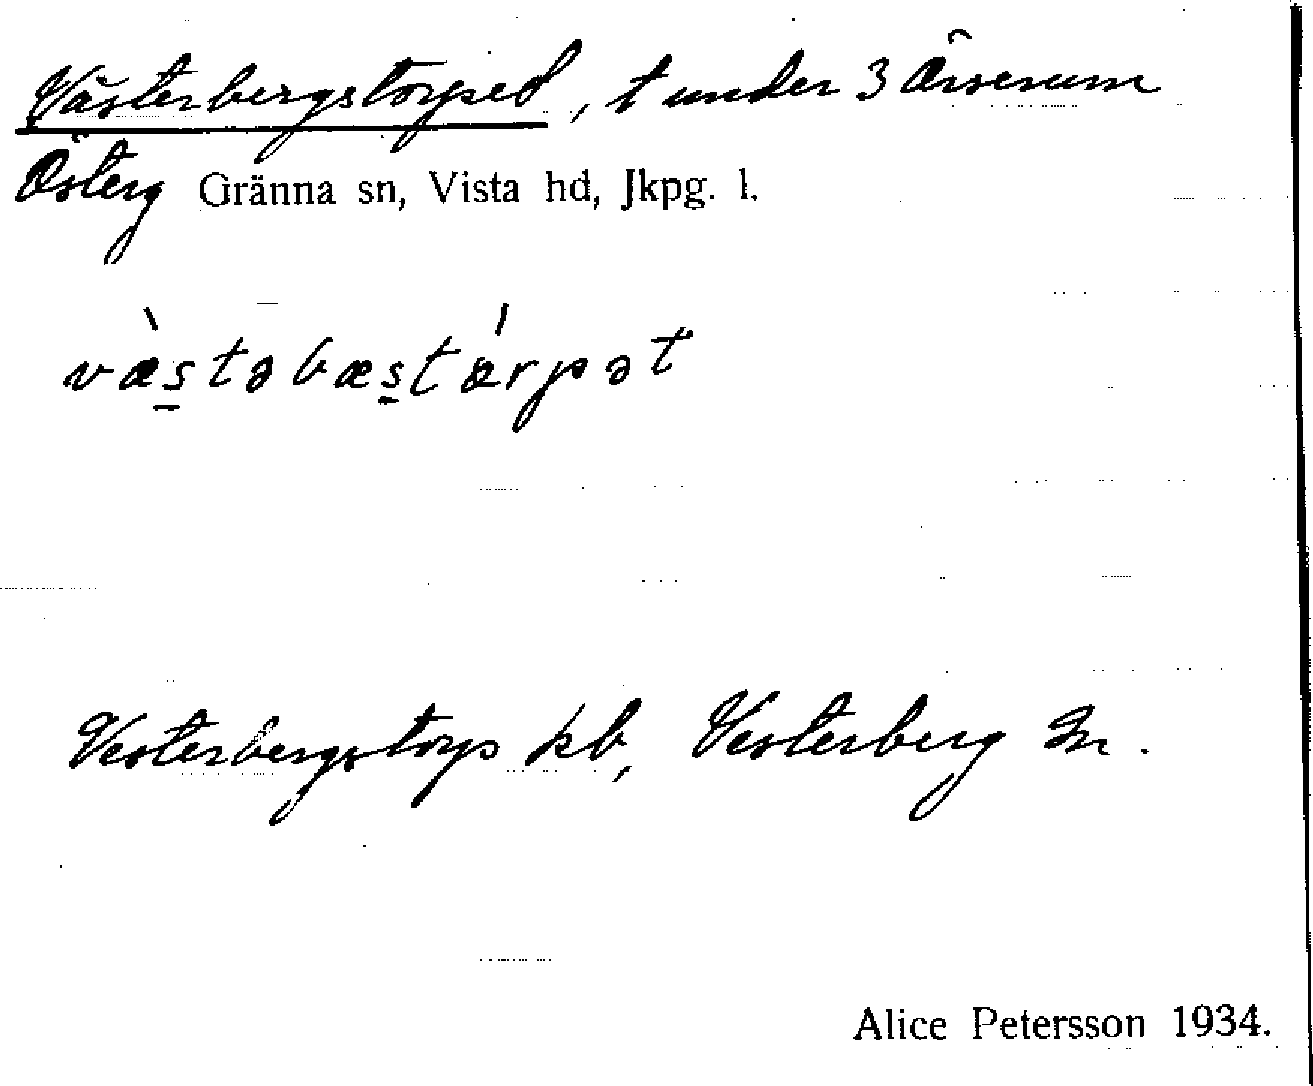 Västerbergstorpet, t under 3 Örserum
Österg Gränna sn, Vista hd, Jkpg. l.
væ̀stəbæstárpət
Vesterbergstorp kb, Vesterberg Gn.
Alice Petersson 1934.